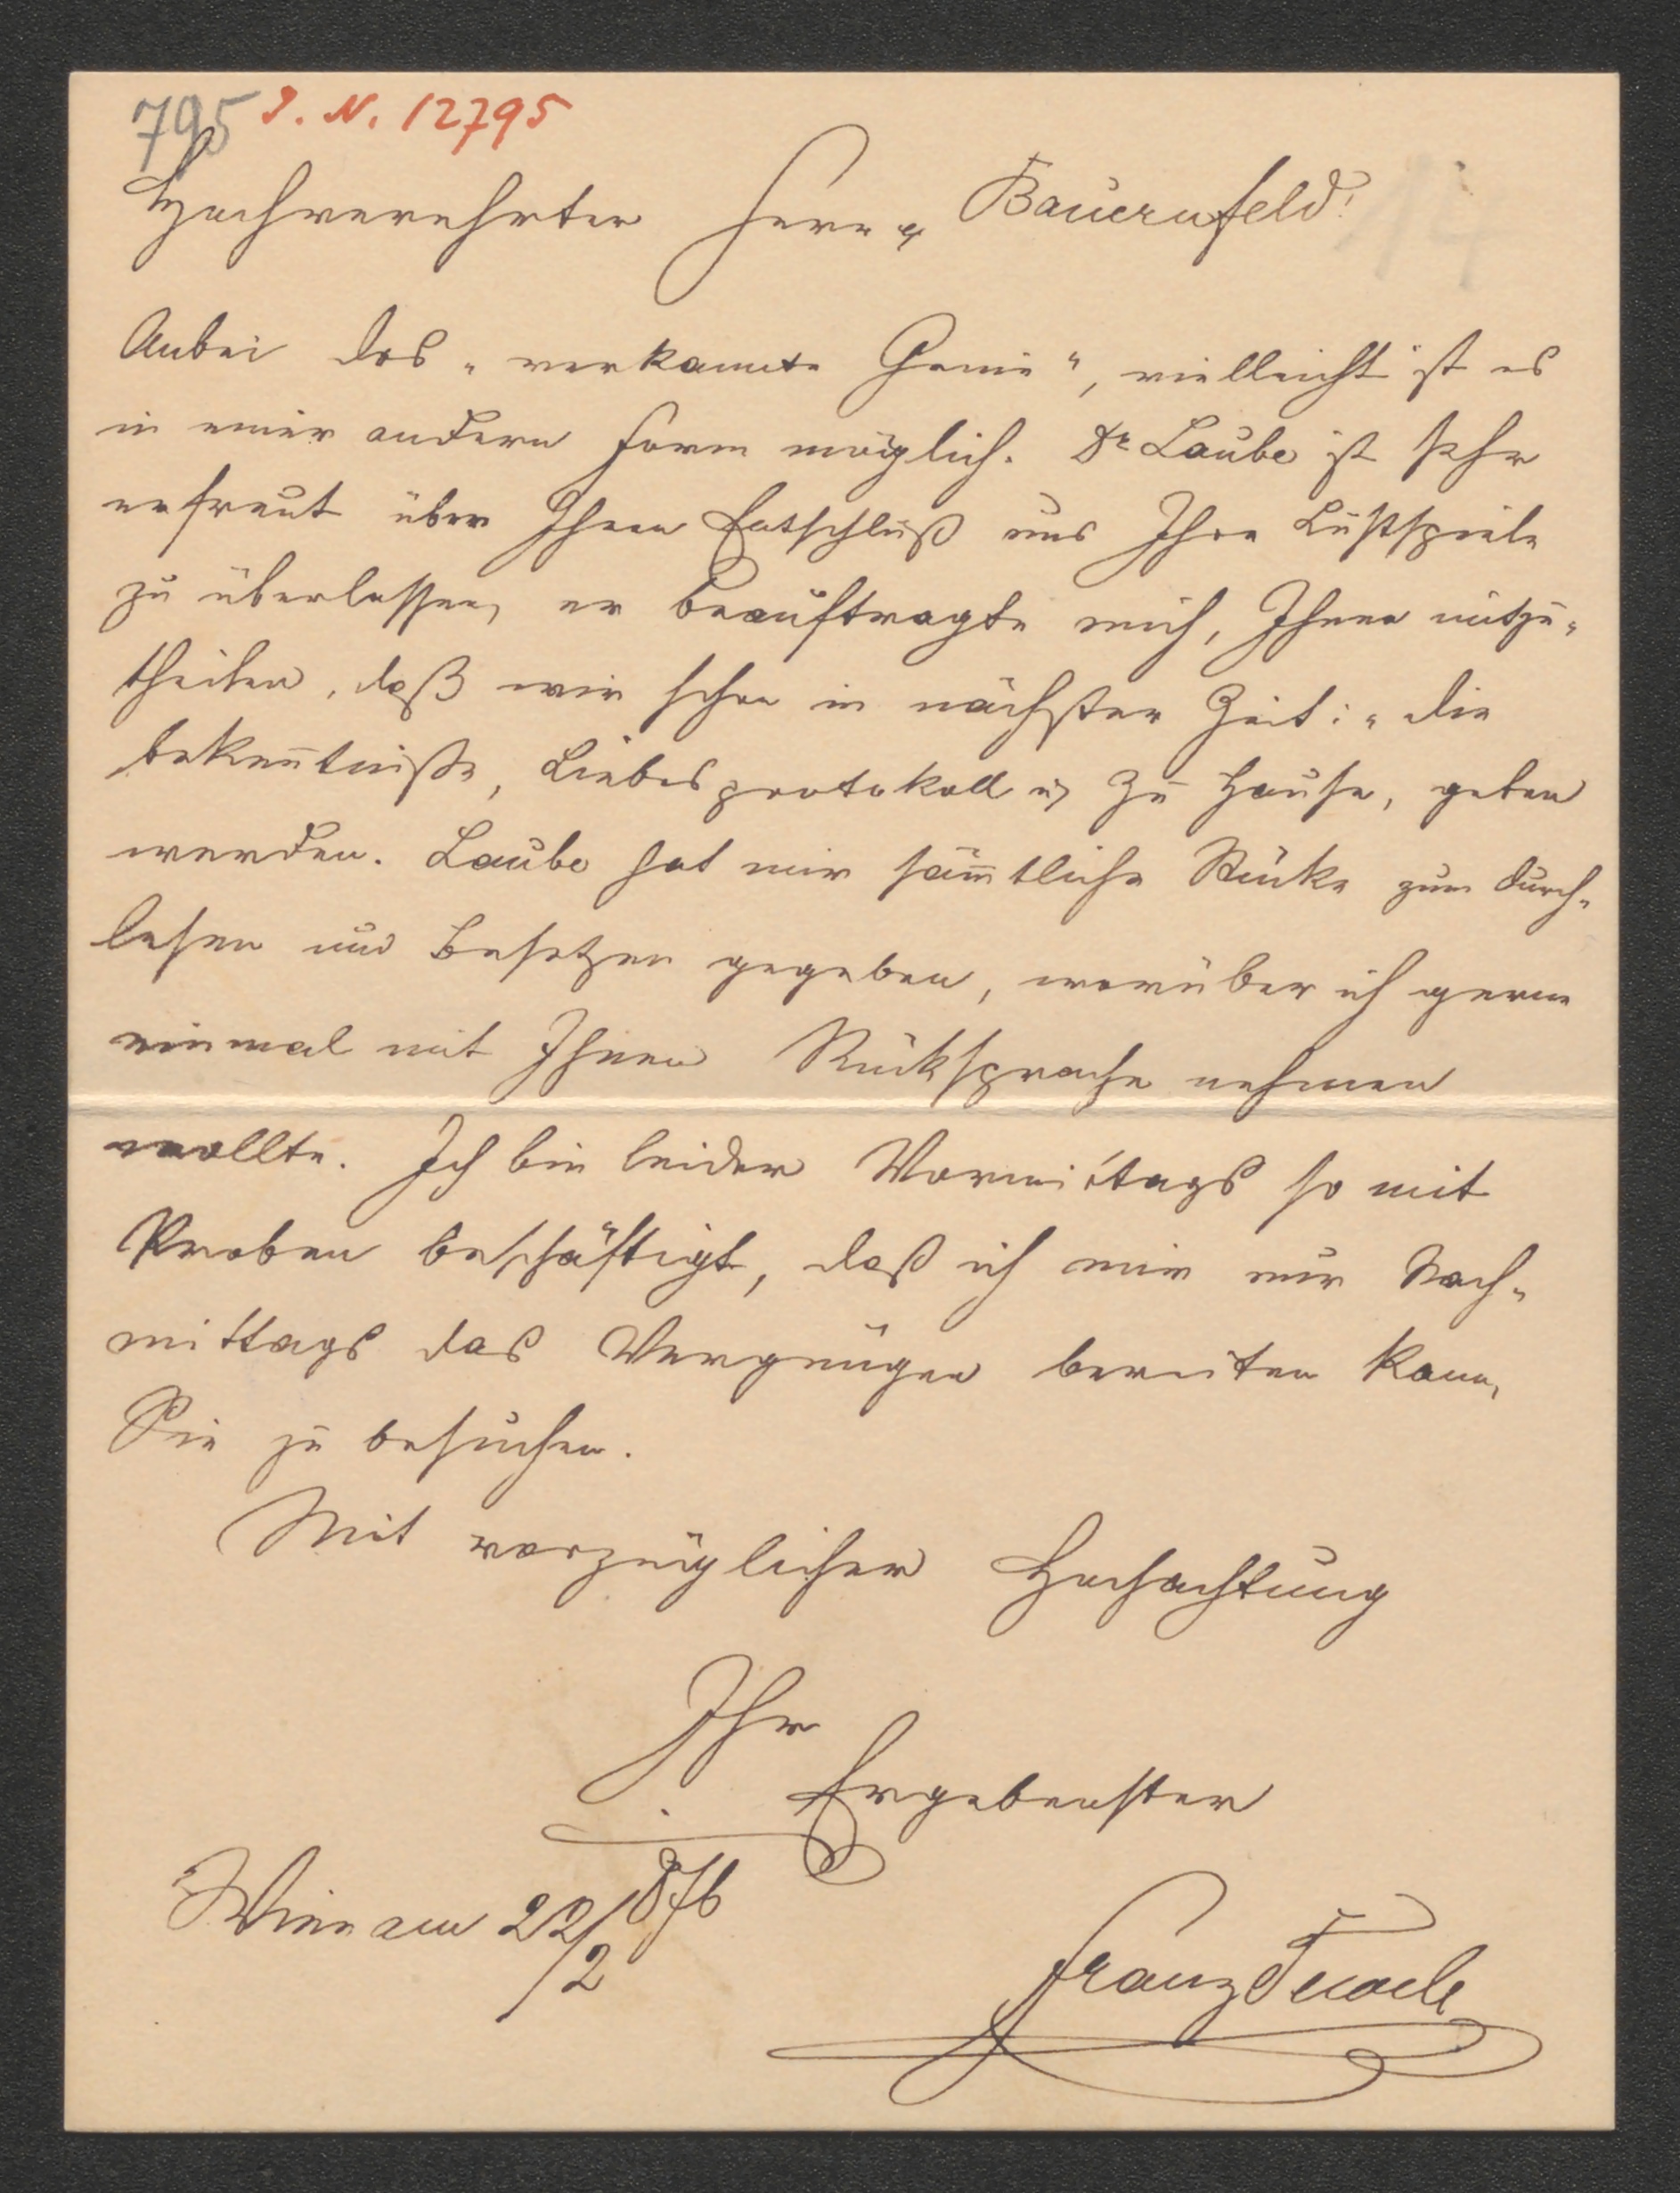 795 I. N. 12795
Hochverehrter Herr v. Bauernfeld!
Anbei das „verkannte Genie“, vielleicht ist es
in einer andern Form möglich. Dr Laube ist sehr
erfreut über Ihren Entschluß uns Ihre Lustspiele
zu überlassen, er beauftragte mich, Ihnen mitzu-
theilen, daß wir schon in nächster Zeit: „die
Bekenntniße, Liebesprotokoll u Zu Hause, geben
werden. Laube hat mir sämmtliche Stücke zum Durch-
lesen und Besetzen gegeben, worüber ich gerne
einmal mit Ihnen Rücksprache nehmen
wollte. Ich bin leider Vormittags so mit
Proben beschäftigt, daß ich mir nur Nach-
mittags das Vergnügen bereiten kann,
Sie zu besuchen.
Mit vorzüglicher Hochachtung
Ihr
Ergebenster
Wien am 22/2 876
Franz Tewele